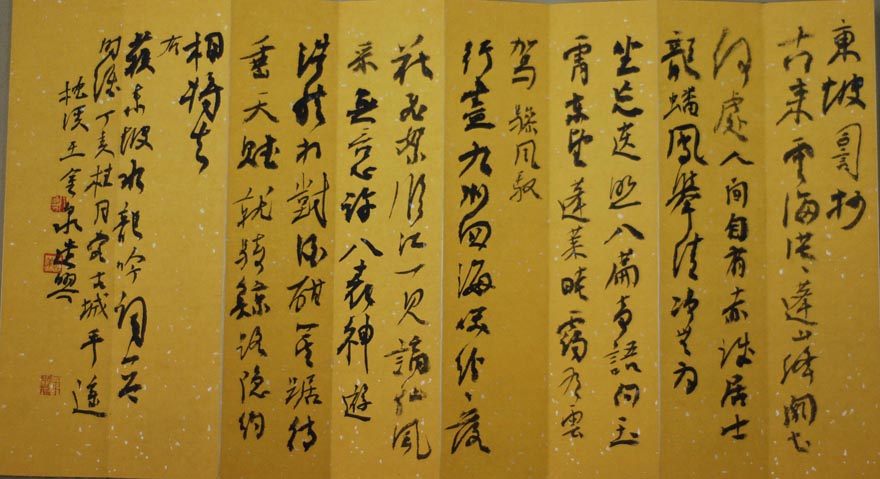 東坡詞抄
古来雲海茫々蓬山绛闕知
何處人間自有赤城居士
龍蟠鳳舉清净無为
坐忘遗照八篇奇語向玉
霄東望蓬莱晻靄有雲
駕驂風馭
行尽九州四海笑纷々落
花飛絮临江一見謫仙風
采無言心許八表神遊
浩然相對酒酣箕踞待
垂天赋就骑鲸路隐约
相将去
右
蘇東坡水龍吟詞一首
丁亥桂月客古城平遥
王金泉